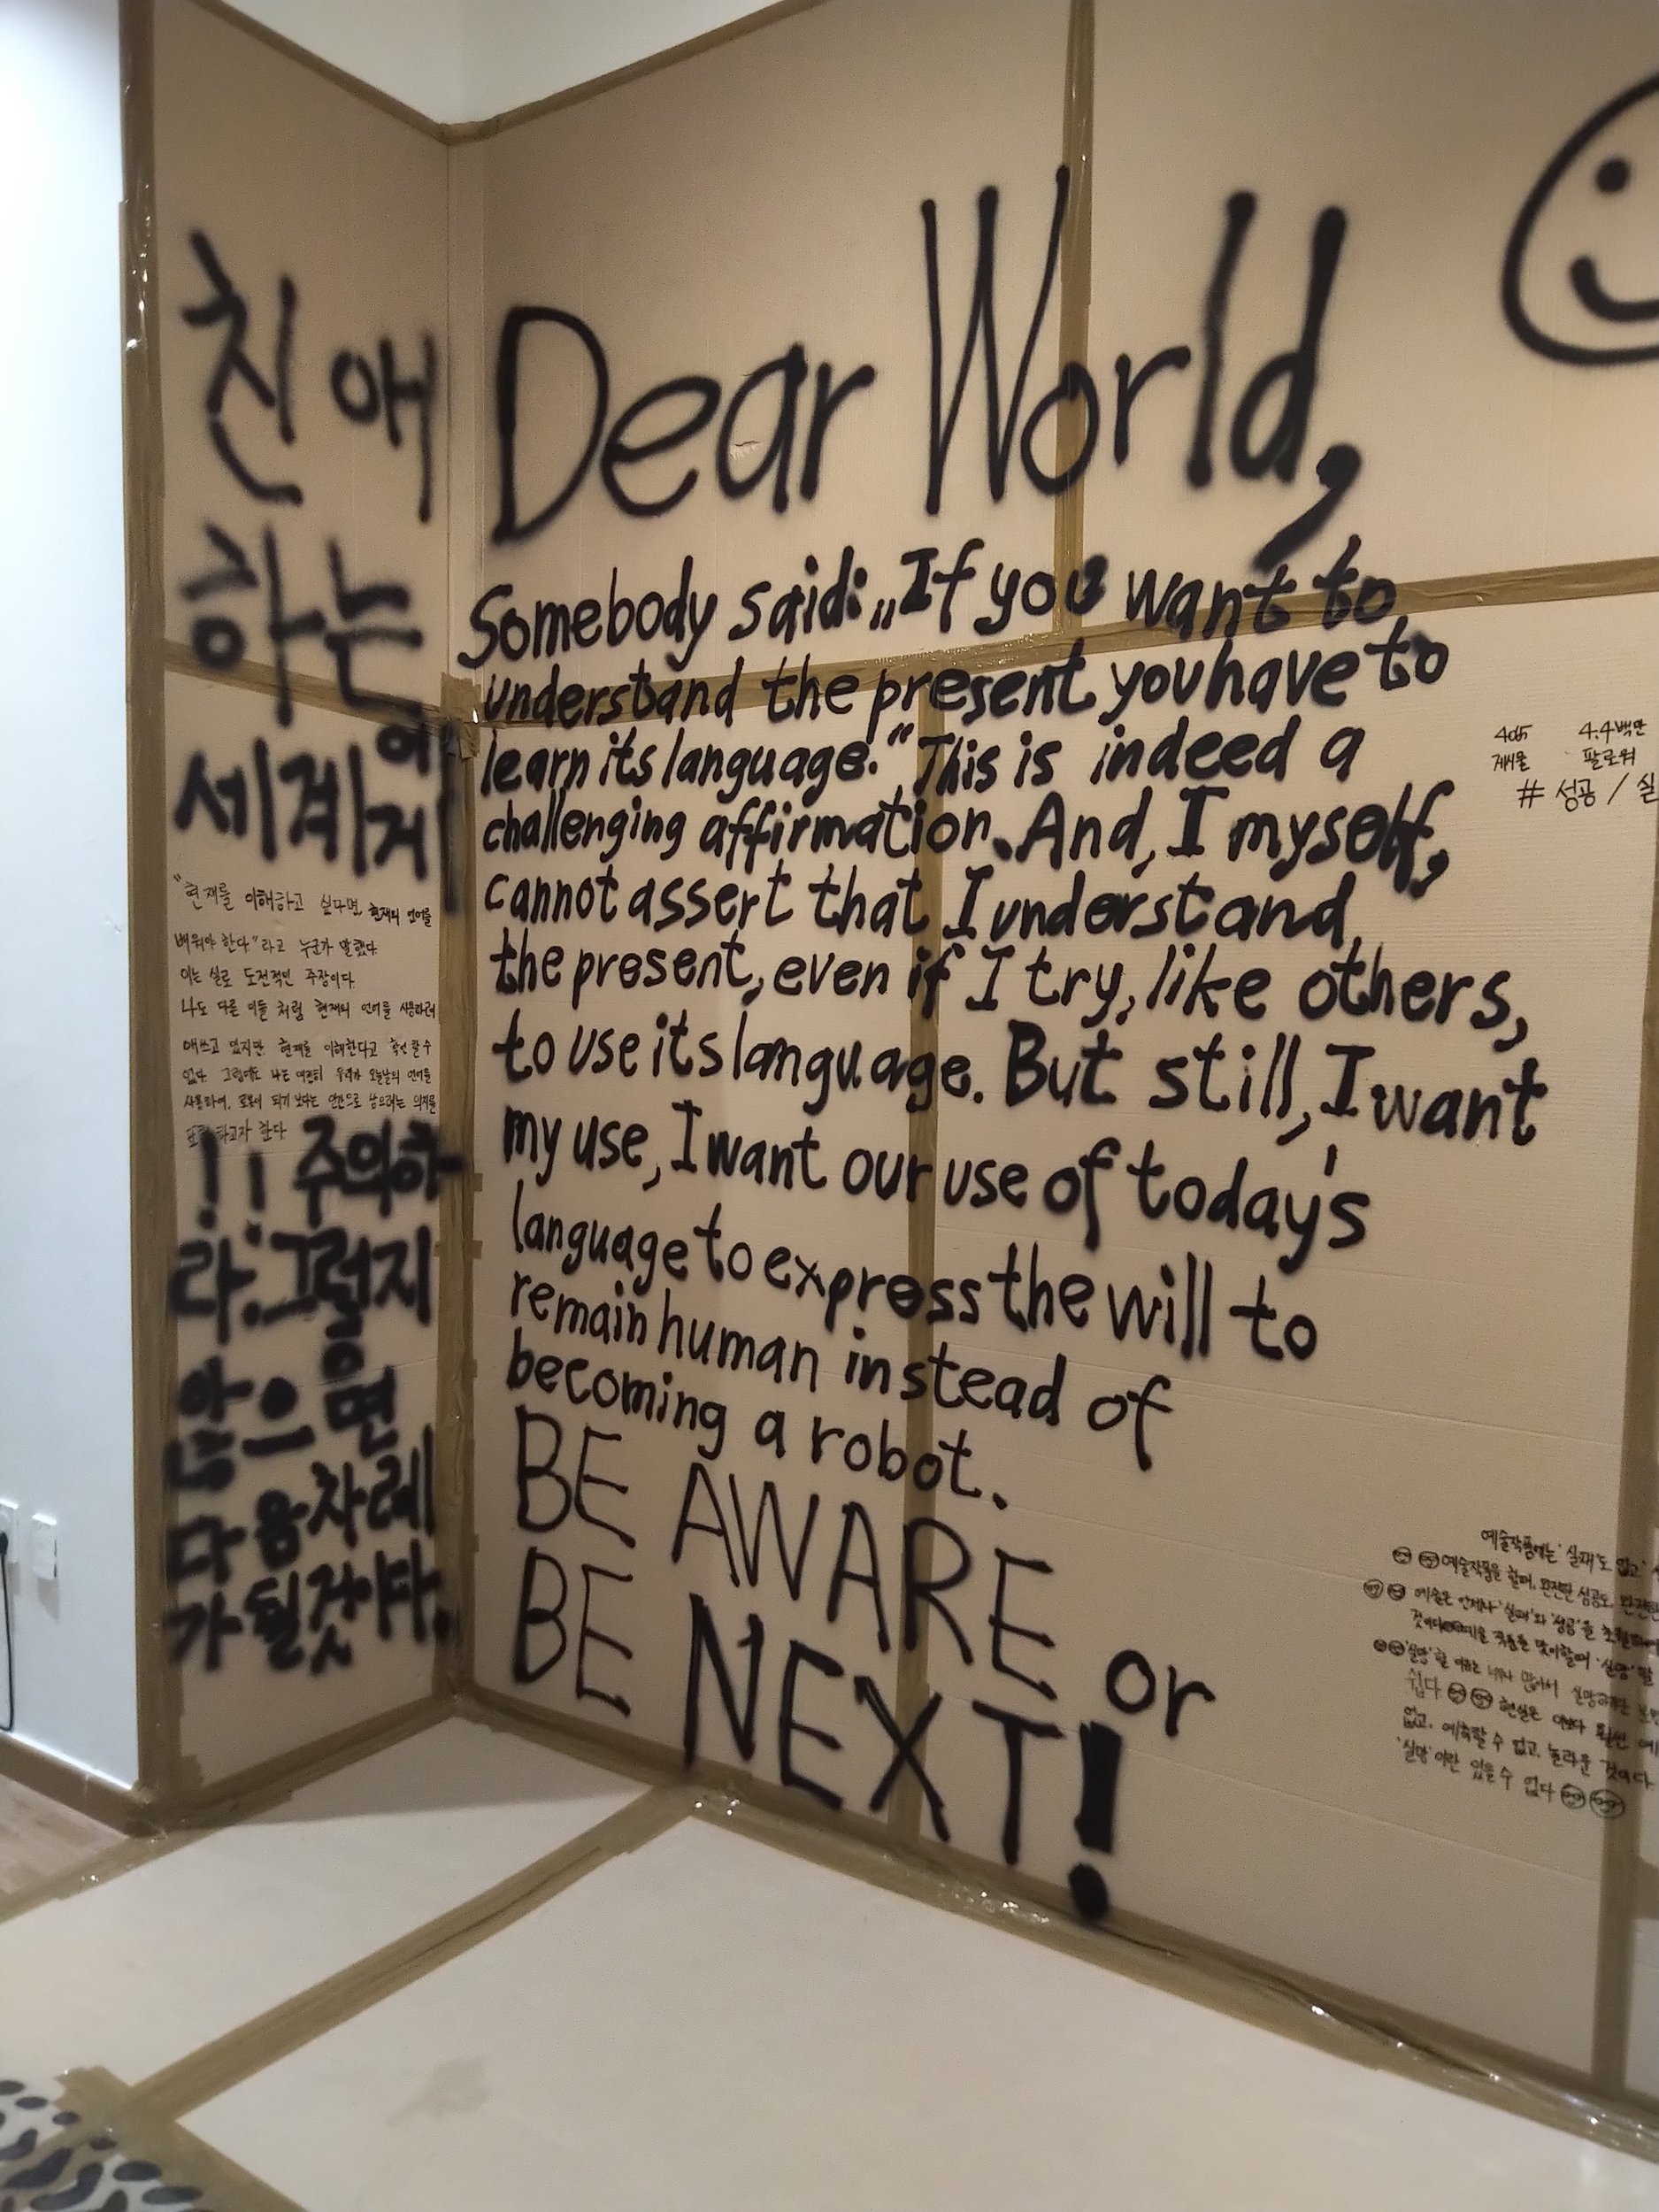 친애
하는
세계에
게
"현재를 이해하고 싶다면, 현재의 언어를
배워야 한다."라고 누군가 말했다.
이는 실로 도전적인 주장이다.
나도 다른 이들 처럼 현재의 언어를 사용하려
애쓰고 있지만, 현재를 이해한다고 확언할 수
없다. 그럼에도 나는 여전히 우리가 오늘날의 언어를
사용하여, 로봇이 되기 보다는 인간으로 남으려는 의지를
하고자 한다.
!! 주의하
라. 그렇지
않으면
다음차례
가 될것이다.
Dear World,
Somebody said: „If you want to
understand the present you have to
learn its language." This is indeed a
challenging affirmation. And, I myself,
cannot assert that I understand
the present, even if I try, like others,
to use its language. But still, I want
my use, I want our use of today's
language to express the will to
remain human instead of
becoming a robot.
BE AWARE or
BE NEXT!
405 4.4백만
게시물 팔로워
# 성공 / 실
예술작품에는 '실패'도 없고
예술작품을 할때, 완전한 성공도, 완전한
예술은 언제나 '실패'와 '성공'을
'실망'할 이유는 너무 많아서 실망하기란
쉽다 현실은 훨씬
없고, 예측할 수 없고, 놀라운 것이다
'실망'이란 있을 수 없다